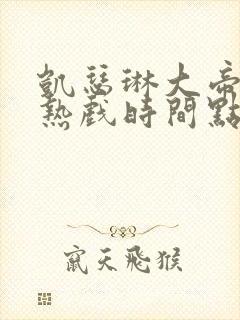 凱瑟琳大帝
熱戲時間點
竄天飛猴